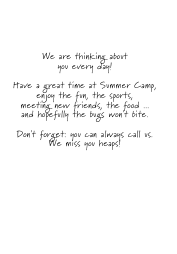 We are thinking about
you every day!
Have a great time at Summer Camp,
enjoy the fun, the sports,
meeting new friends, the food ...
and hopefully the bugs won't bite.
Don't forget: you can always call us.
We miss you heaps!